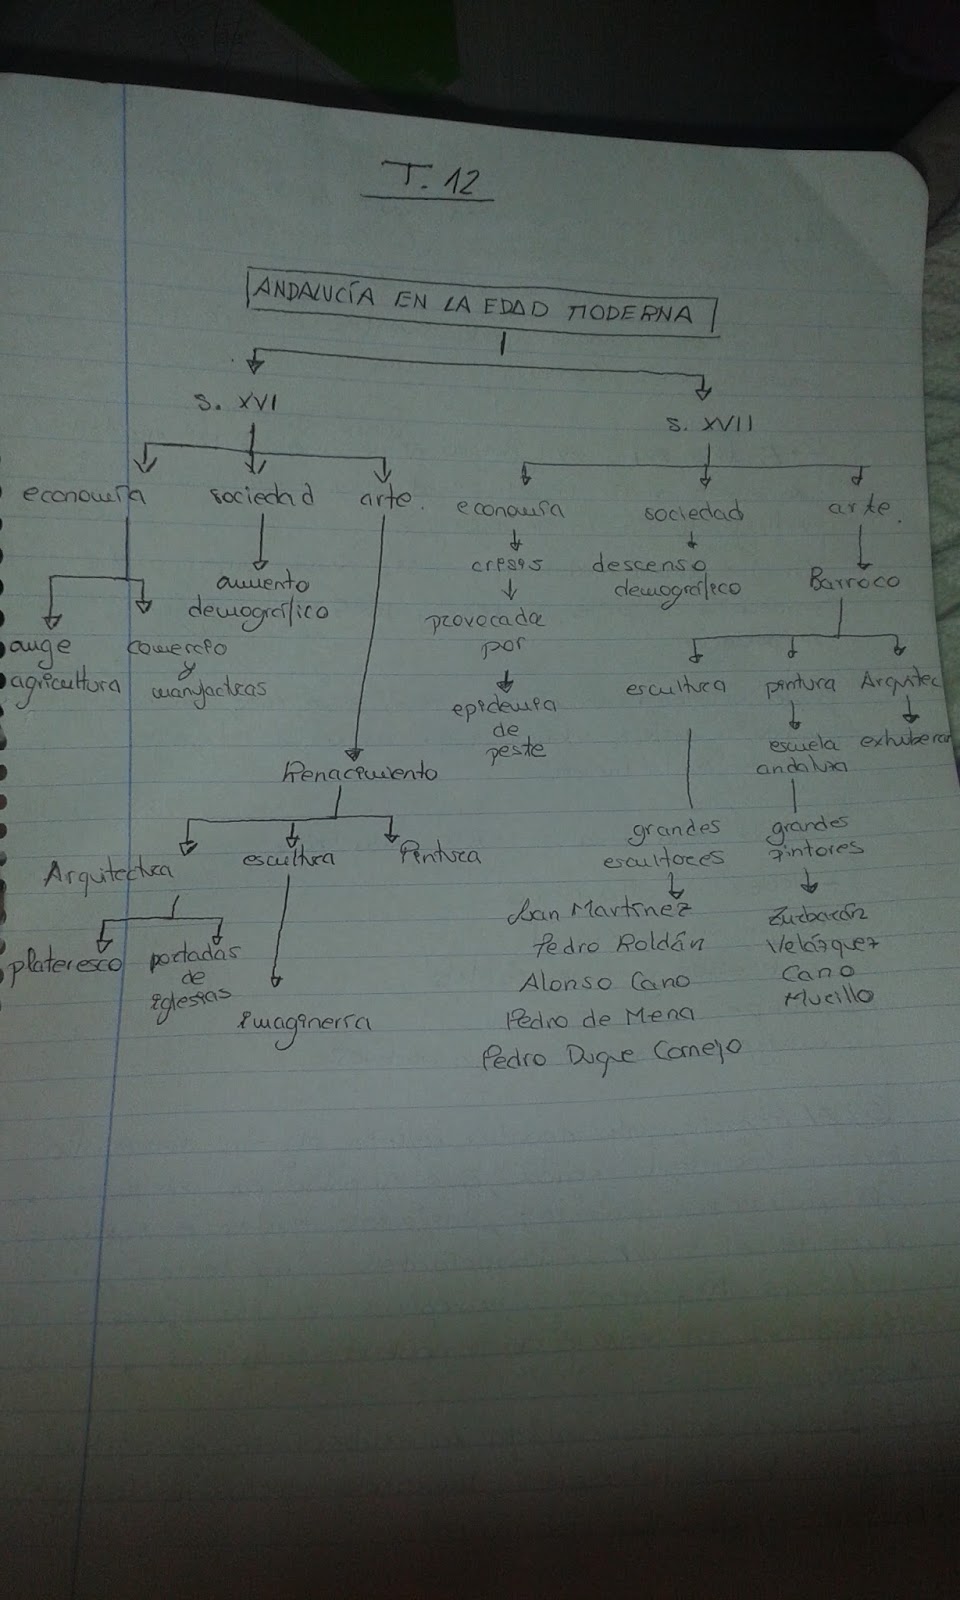 T. 12
ANDALUCÍA EN LA EDAD MODERNA
S. XVI
S. XVII
economía sociedad arte.
economía sociedad arte.
auge
agricultura
comercio
y
manufacturas
aumento
demográfico
Renacimiento
Arquitectura escultura Pintura
plateresco
portadas
de
iglesias
imaginería
crisis
provocada
por
epidemia
de
peste
descenso
demográfico
Barroco
escultura pintura Arquitec
grandes
escultores
Juan Martínez
Pedro Roldán
Alonso Cano
Pedro de Mena
Pedro Duque Cornejo
escuela
andaluza
grandes
pintores
Zurbarán
Velázquez
Cano
Murillo
exhuberan